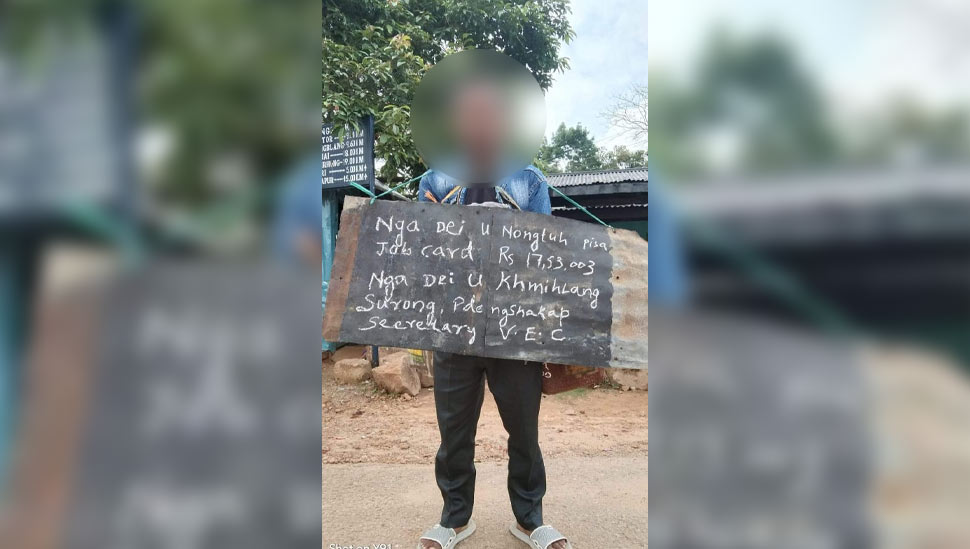 Nga Dei U Nongtuh Pisa
Job card Rs 17,53,003
Nga Dei U Khmihlang
Surong, Pdengshakap
Secretary V.E.C
Shot on Y91